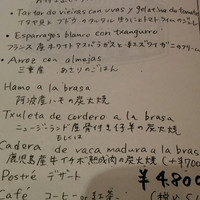 • Tartar de vieiras con uvas y gelatina de tomate
• Esparragos blanco con txangurro
フランス産ホワイトアスパラガスと
• Arroz con almejas
三重産 あさりのごはん
Hamo a la brasa
阿波産ハモの炭火焼
Txuleta de cordero a la brasa
ニュージーランド産骨付き仔羊の炭火焼
もしくは
Cadora de vaca madura a la brasa
鹿児島産牛イチボ熟成肉の炭火焼 (+¥700
Postré デザート
¥4.800
Café コーヒー or 紅茶